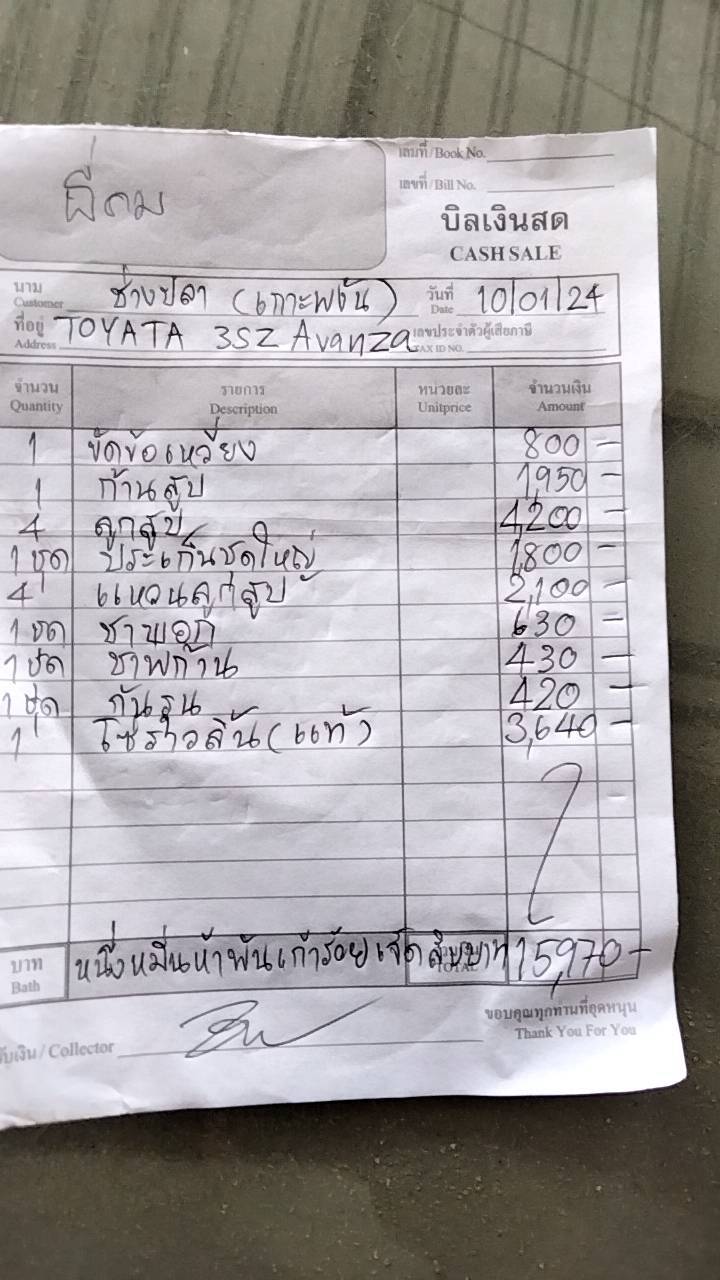 พี่คม
เล่มที่/Book No.
เลขที่/Bill No.
บิลเงินสด
CASH SALE
นาม ช่างปลา (เกาะพงัน) วันที่ 10/01/24
Customer Date
ที่อยู่ TOYATA 3SZ Avanza เลขประจำตัวผู้เสียภาษี
Address TAX ID NO.
จำนวน รายการ หน่วยละ จำนวนเงิน
Quantity Description Unitprice Amount
1 ขัดข้อเหวี่ยง 800 -
1 ก้านสูบ 1,950 -
4 ลูกสูบ 4,200 -
1 ชุด ประเก็นชุดใหญ่ 1,800 -
4 แหวนลูกสูบ 2,100 -
1 ชุด ชาพอก 630 -
1 ชุด ชาพก้าน 430 -
1 ชุด กันรุน 420 -
1 โซ่ราวลิ้น (แท้) 3,640 -
บาท หนึ่งหมื่นห้าพันเก้าร้อยเจ็ดสิบบาท 15,970 -
Bath TOTAL
ขอบคุณทุกท่านที่อุดหนุน
รับเงิน / Collector Thank You For You